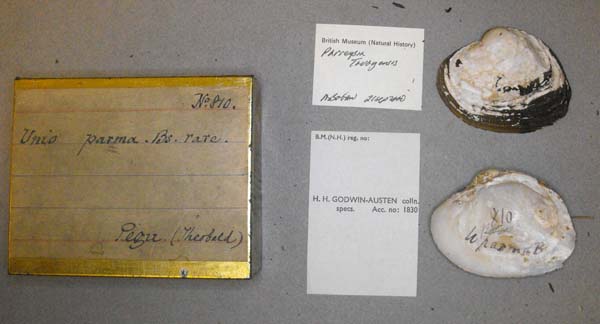 No. 810.
Unio parma. Bs. rare.
Pegu. (Theobald)
British Museum (Natural History)
Parreysia
Tavoyensis
B.M.(N.H.) reg. no:
H. H. GODWIN-AUSTEN colln.
specs. Acc. no: 1830
810
U parma B